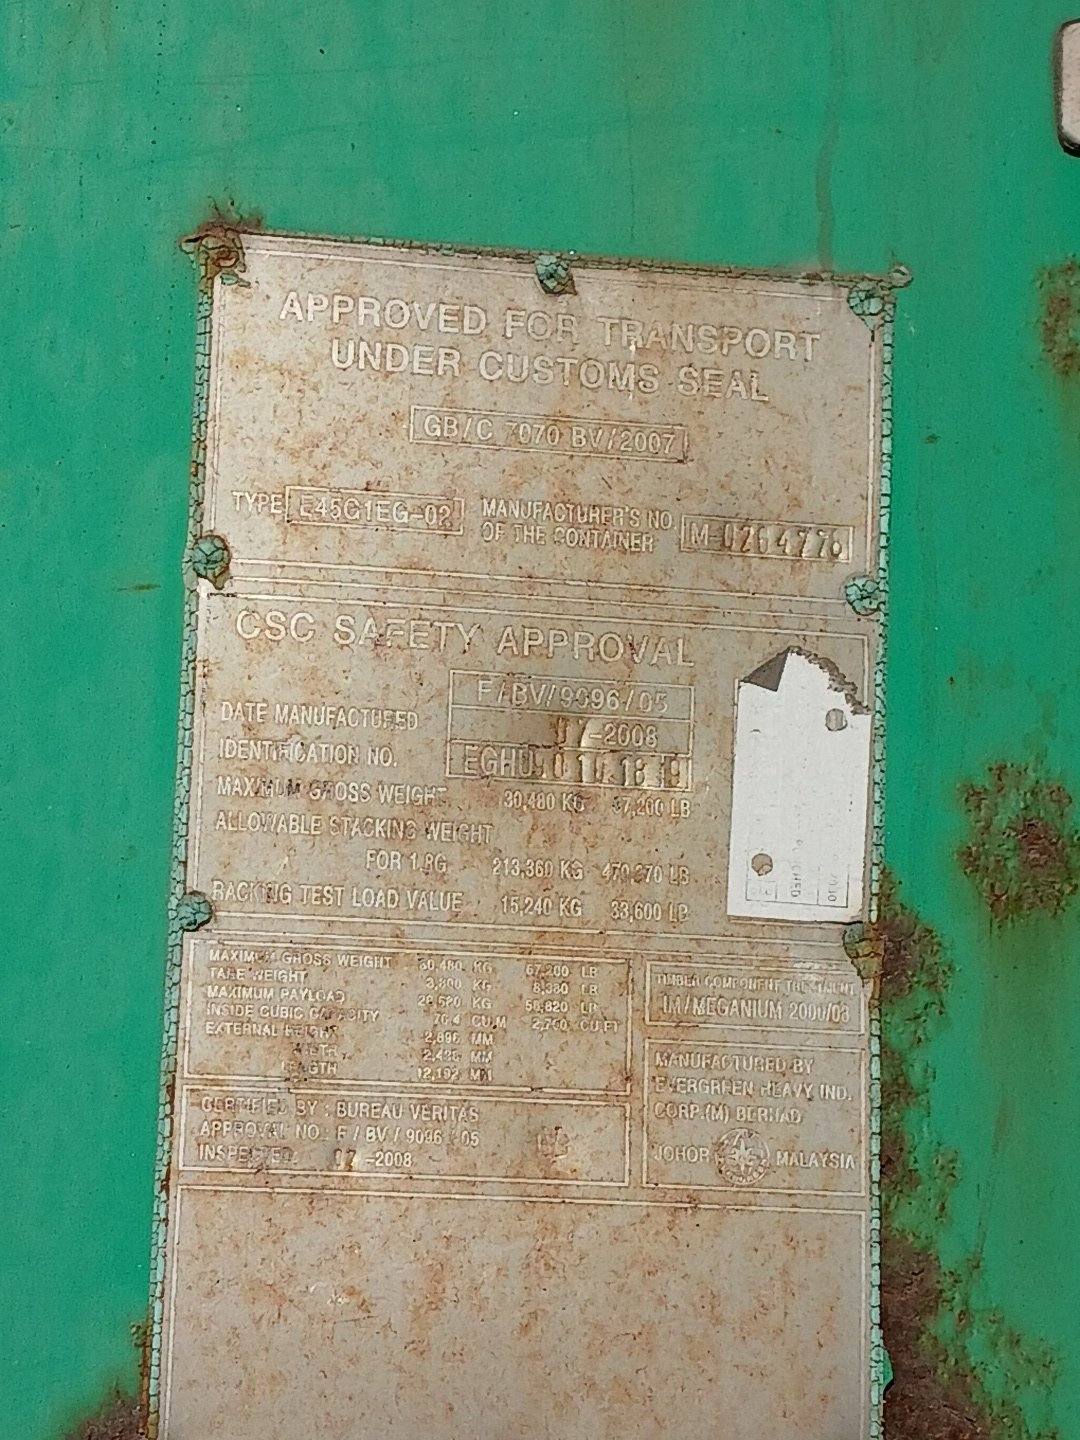 APPROVED FOR TRANSPORT
UNDER CUSTOMS SEAL
GB/C 7070 BV/2007
TYPE E45G1EG-02 MANUFACTURER'S NO. OF THE CONTAINER M-0264776
CSC SAFETY APPROVAL
F/BV/9096/05
DATE MANUFACTURED 07-2008
IDENTIFICATION NO.
MAXIMUM GROSS WEIGHT 30,480 KG 67,200 LB
ALLOWABLE STACKING WEIGHT
FOR 1.8G 213,360 KG 470,370 LB
RACKING TEST LOAD VALUE 15,240 KG 33,600 LB
MAXIMUM GROSS WEIGHT 30,480 KG 67,200 LB
TARE WEIGHT KG LB
MAXIMUM PAYLOAD KG LB
INSIDE CUBIC CAPACITY 76.4 CU.M 2,700 CU.FT
EXTERNAL HEIGHT 2,896 MM
WIDTH 2,438 MM
LENGTH 12,192 MM
CERTIFIED BY : BUREAU VERITAS
APPROVAL NO. : F / BV / 9096 / 05
INSPECTED 07-2008
TIMBER COMPONENT TREATMENT
IM/MEGANIUM 2000/08
MANUFACTURED BY
EVERGREEN HEAVY IND.
CORP.(M) BERHAD
JOHOR MALAYSIA